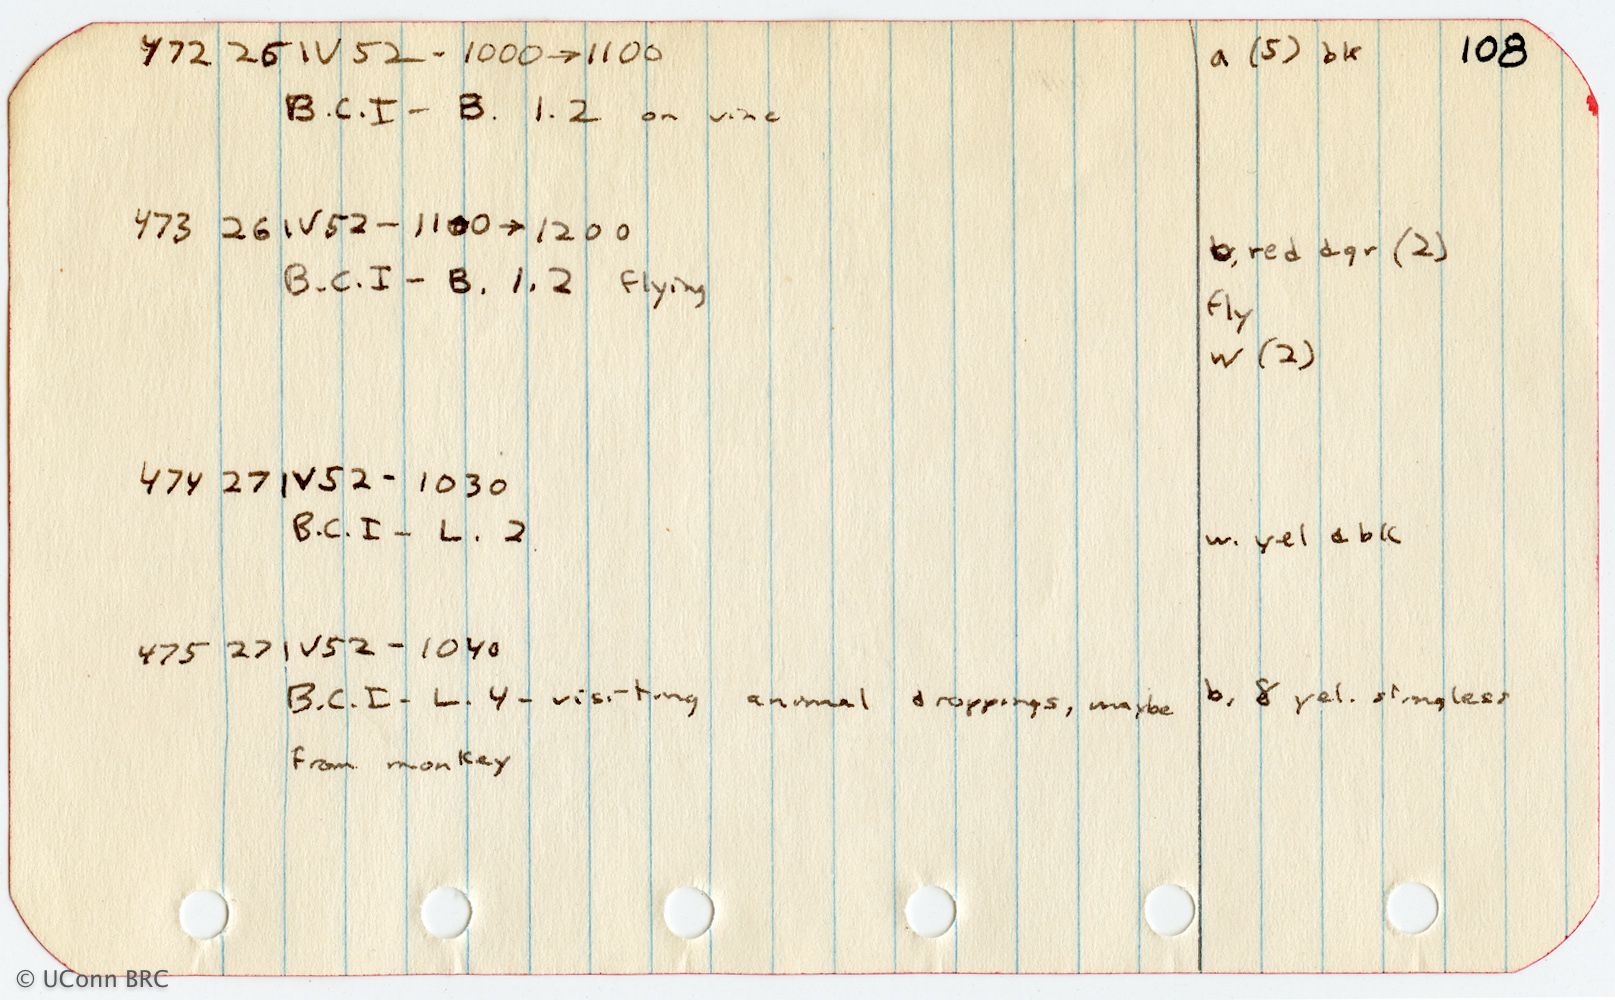 472 26 IV 52 - 1000→1100 a (5) bk 108
B.C.I - B. 1.2 on vine
473 26 IV 52 - 1100→1200
b, red & gr (2)
B.C.I - B. 1.2 flying
fly
w (2)
474 27 IV 52 - 1030
B.C.I - L. 2 w. yel & bk
475 27 IV 52 - 1040
B.C.I - L. 4 - visiting animal droppings, maybe b, 8 yel. stingless
from monkey
© UConn BRC